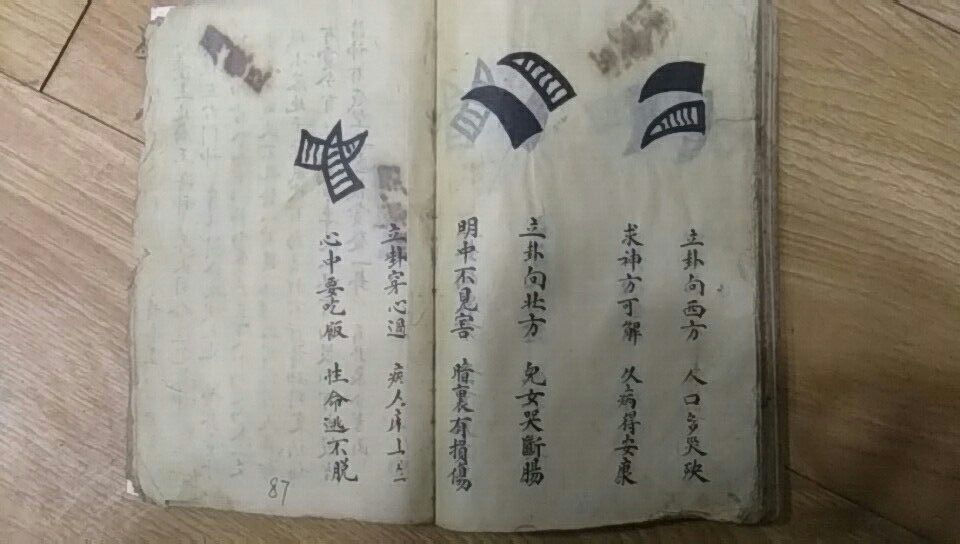 立卦向西方 人口多哭殃
求神方可解 久病得安康
立卦向北方 兒女哭斷腸
明中不見害 暗裏有損傷
立卦穿心過 病人床上
心中要吃飯 性命逃不脫
87